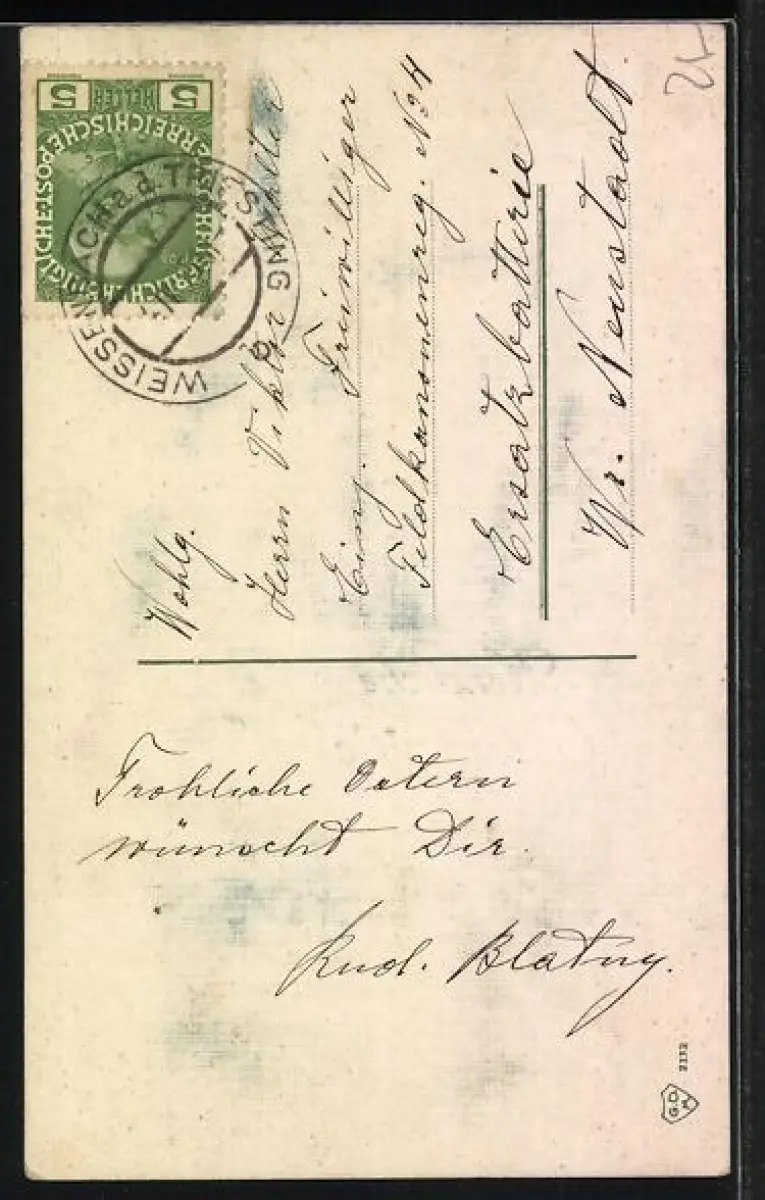 5 HELLER 5
KAISERLICHE KÖNIGLICHE ÖSTERREICHISCHE POST
WEISSENBACH a.d. TRIESTING
Wohlg.
Herrn Viktor
Einj. Freiwilliger
Feldkanonenreg. No 4
Ersatzbatterie
Wr. Neustadt.
Frohliche Ostern
wünscht Dir.
Rud. Blatny.
2132
G.D.
M